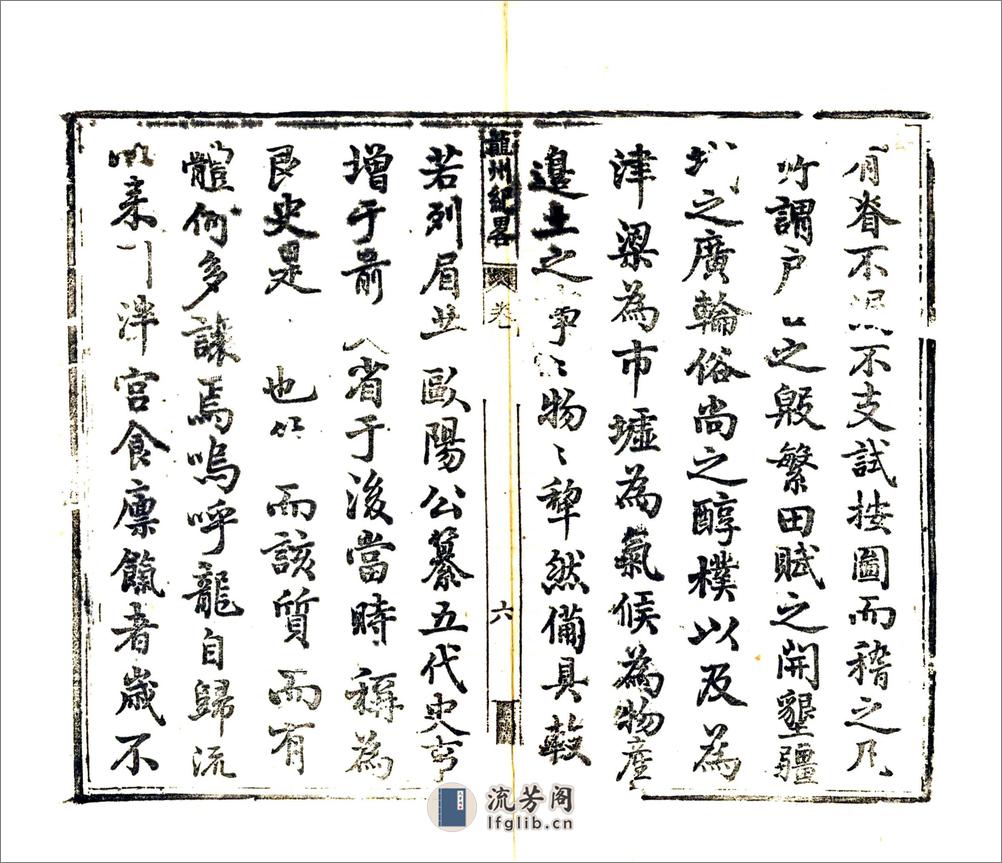 有脊不混不支試按圖而稽之凡
所謂戶口之殷繁田賦之開墾疆
域之廣輪俗尚之醇樸以及為
津梁為市墟為氣候為物產
邊土之事〻物〻犂然備具較
龍州紀畧
卷
六
若列眉並歐陽公纂五代史事
增于前省于後當時稱為
良史是也而該質而有
體何多讓焉嗚呼龍自歸流
以來泮宮食廪餼者歲不
流芳阁
lfglib.cn